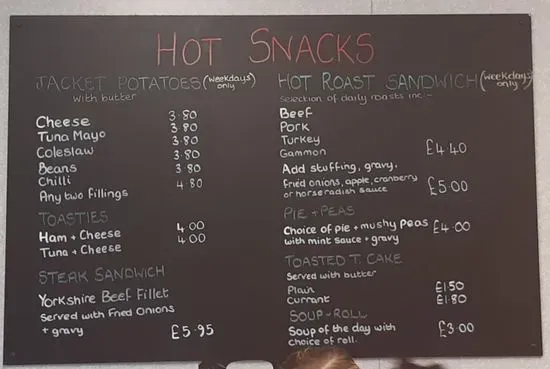 HOT SNACKS
JACKET POTATOES (weekdays only)
with butter
Cheese 3.80
Tuna Mayo 3.80
Coleslaw 3.80
Beans 3.80
Chilli 4.80
Any two fillings
TOASTIES
Ham + Cheese 4.00
Tuna + Cheese 4.00
STEAK SANDWICH
Yorkshire Beef Fillet
Served with Fried Onions
+ gravy £5.95
HOT ROAST SANDWICH (weekdays only)
Selection of daily roasts inc:-
Beef
Pork
Turkey
Gammon £4.40
Add stuffing, gravy,
Fried onions, apple, cranberry
or horseradish sauce £5.00
PIE + PEAS
Choice of pie + mushy Peas £4.00
with mint sauce + gravy
TOASTED T. CAKE
Served with butter
Plain £1.50
Currant £1.80
SOUP + ROLL
Soup of the day with £3.00
choice of roll.